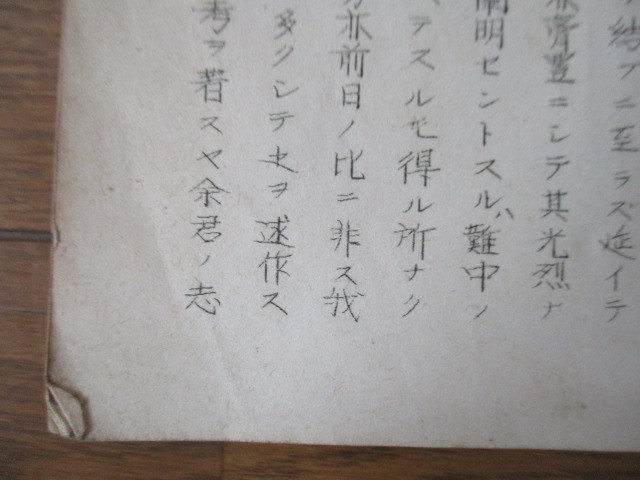 結フニ至ラズ近イテ
亦齊豊ニシテ其光烈ナ
闡明セントスルハ難中ノ
ヲスルモ得ル所ナク
亦前日ノ比ニ非ス我
多クシテ世ヲ述作ス
考ヲ著スヤ余君ノ志